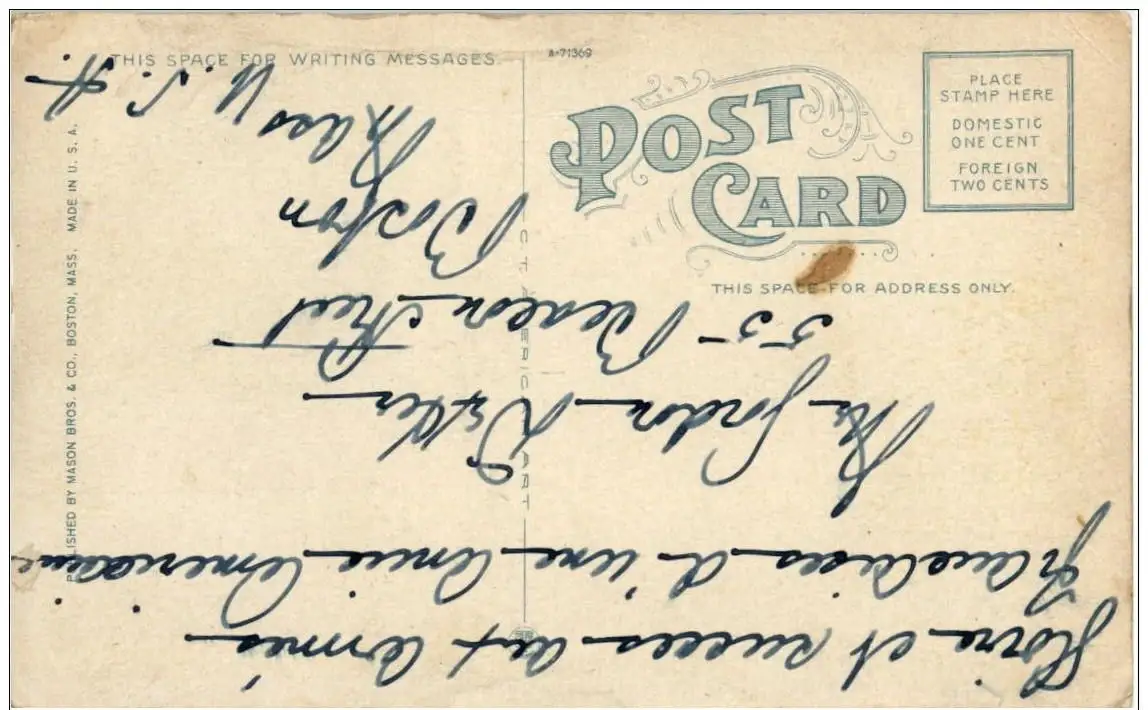 THIS SPACE FOR WRITING MESSAGES.
A-71369
POST CARD
PLACE
STAMP HERE
DOMESTIC
ONE CENT
FOREIGN
TWO CENTS
THIS SPACE FOR ADDRESS ONLY.
PUBLISHED BY MASON BROS. & CO., BOSTON, MASS. MADE IN U. S. A.
C.T. AMERICAN ART
Gloire et succes aux Armés
Francaises d'une Amie Americaine.
Mr Gordon Dexter
55 Beacon Street
Boston
Mass U.S.A.